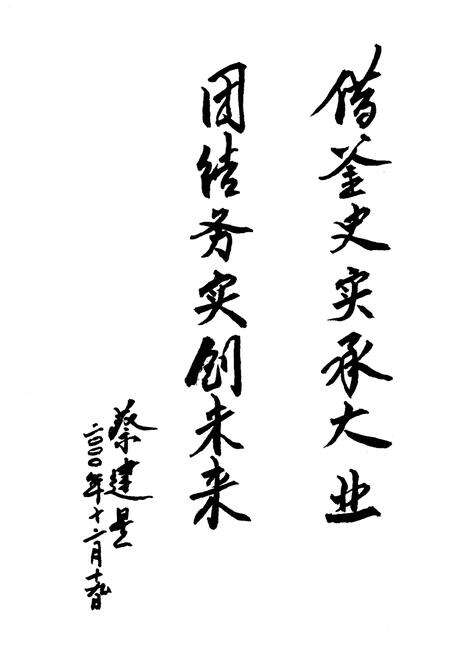 借釜史实承大业
团结务实创未来
蔡建星
二〇〇〇年十二月十九日